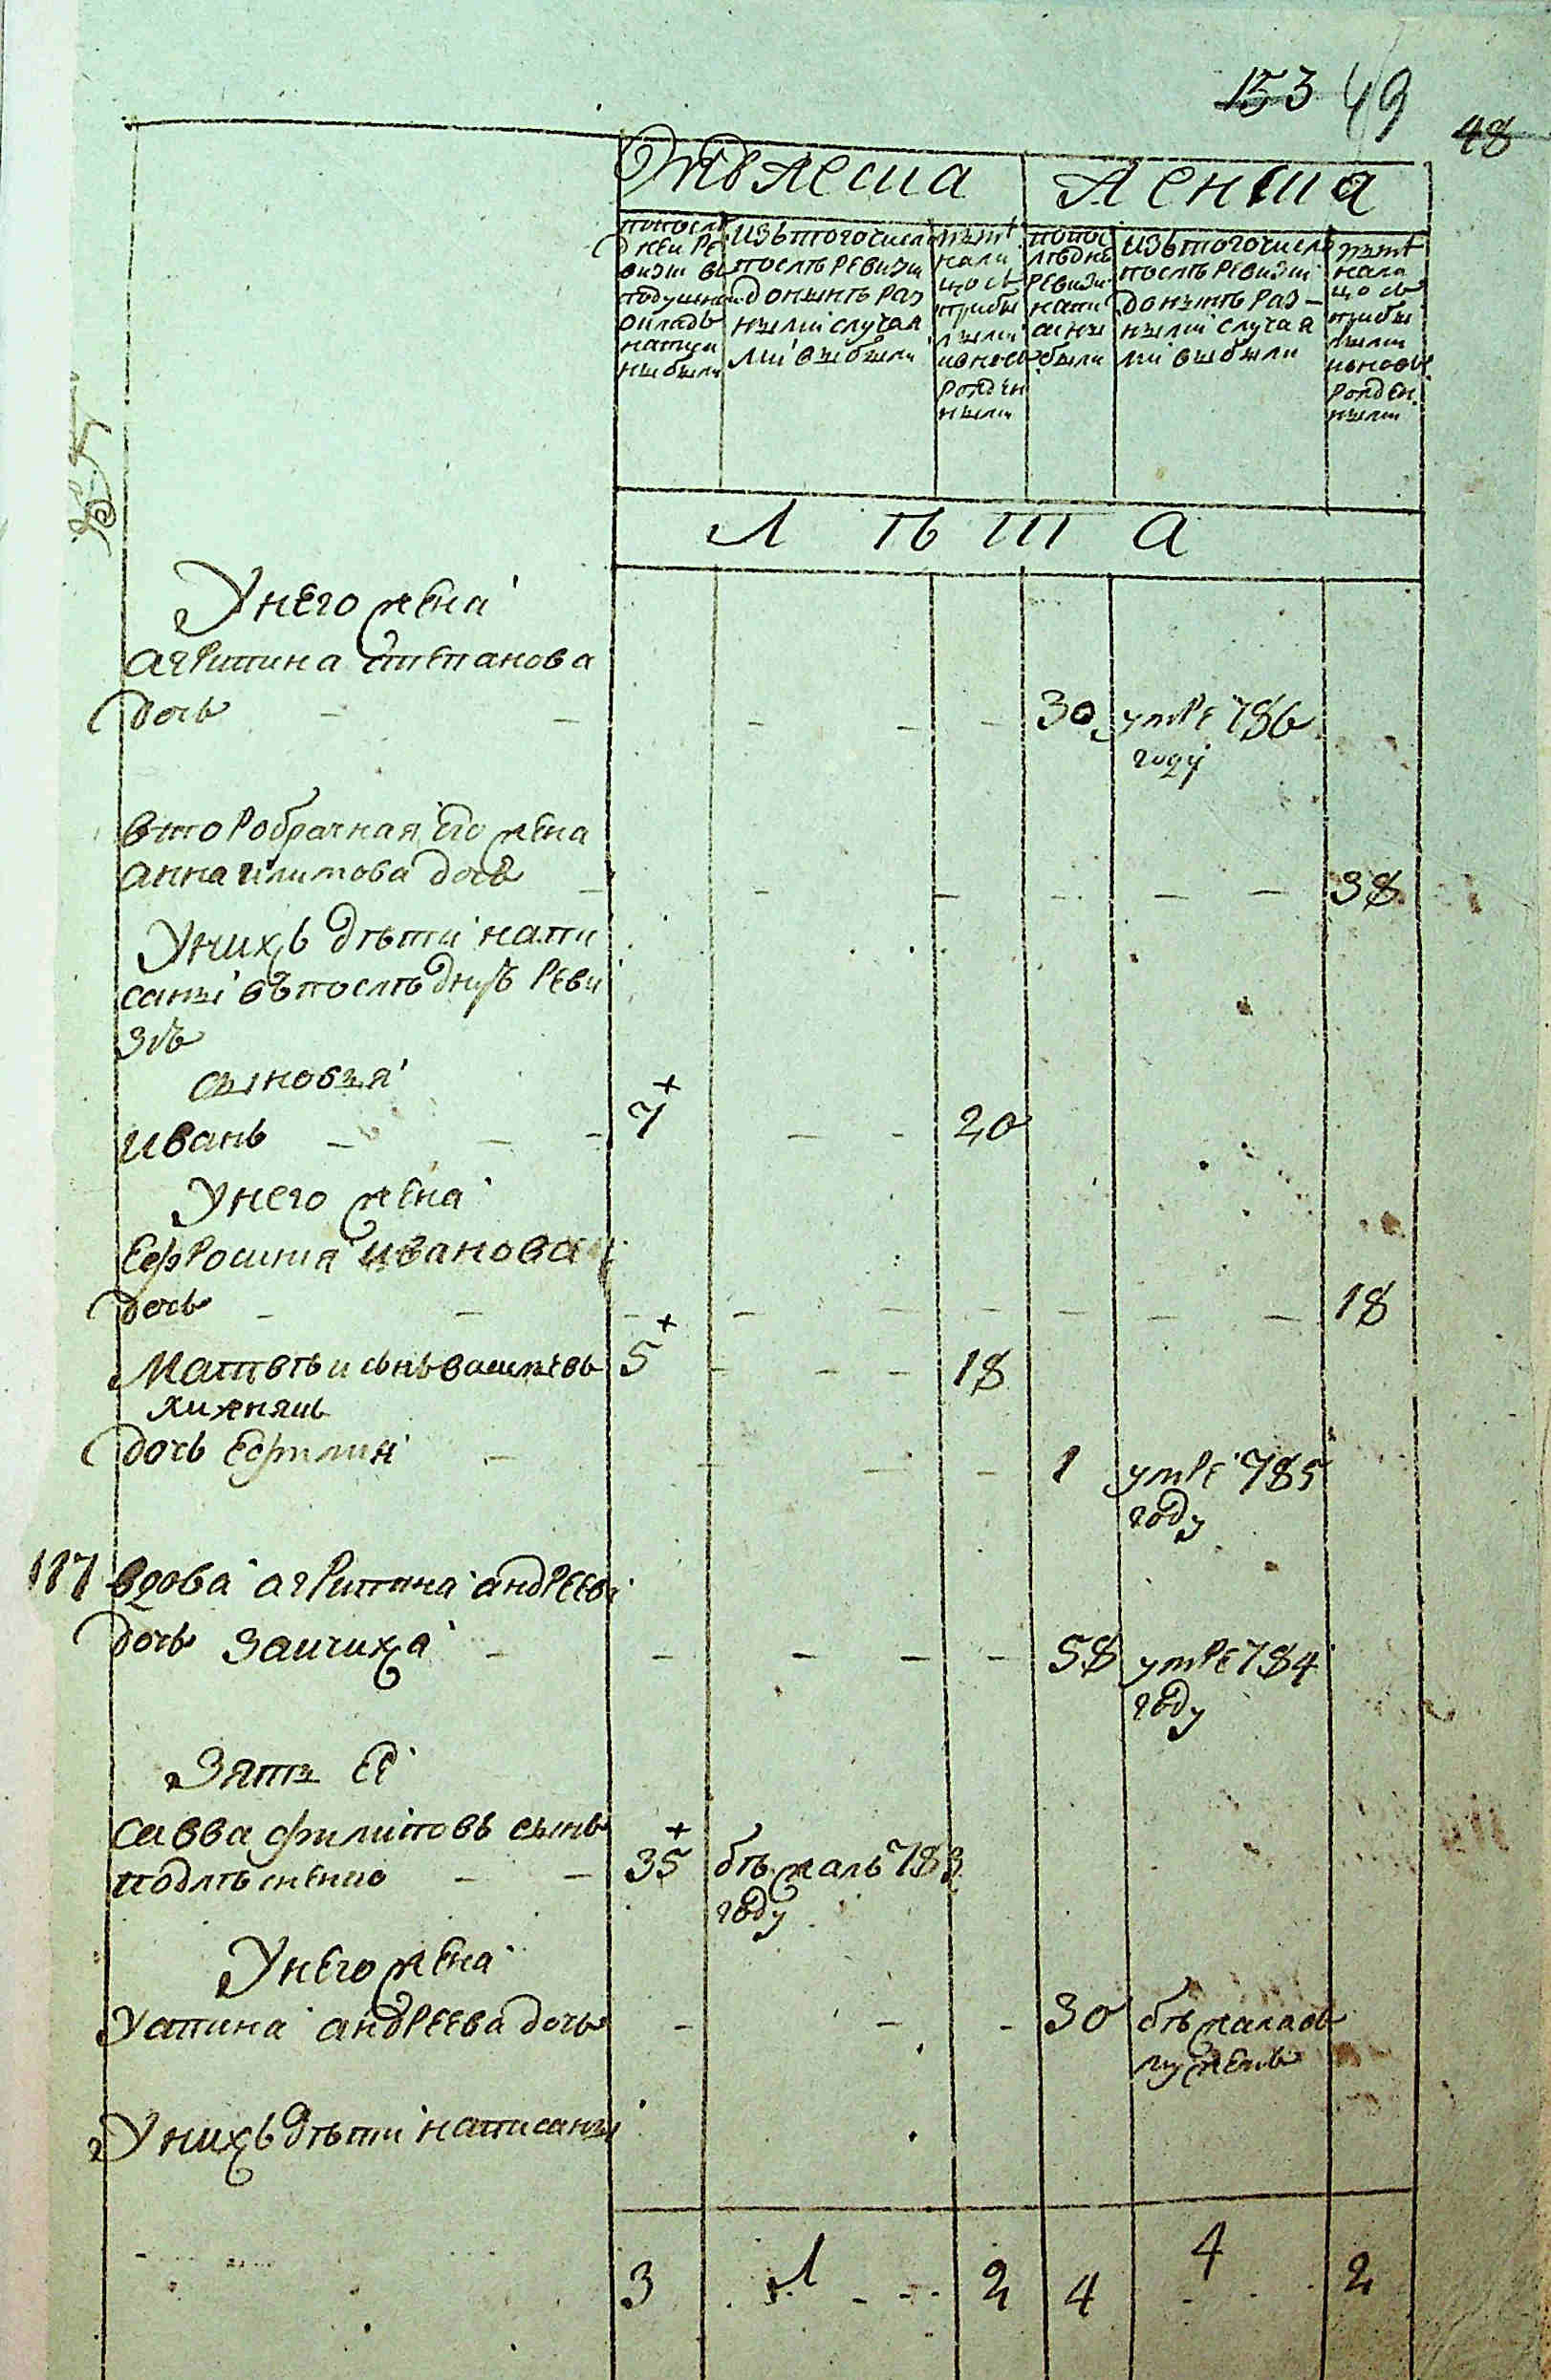 153 49
48
Мужеска Женска
по после
дней ре
визіи въ
подушной
окладъ
написа
ны были
изъ того числа
после ревизіи
до ныне раз
ными случая
ми выбыли
ныне
нали
цо съ
прибы
лыми
и вновь
рожден
ными
по пос
ледне
ревизи
напи
саны
были
изъ того числа
после ревизіи
до ныне раз
ными случая
ми выбыли
ныне
нали
цо съ
прибы
лыми
и вновь
рожден
ными
Л ѣ т а
У него жена
агрипина степанова
дочь - - - - - 30 умре 786
году
второбрачная его жена
анна климова дочь - - - - - - 38
У нихъ дѣти напи
саны въ последней реви
зіи
сыновья
иванъ - - - 7 - - 20
У него жена
Ефросинья иванова
дочь - - - - - - - - - 18
Матвѣи сынъ васильевъ 5 - - - 18
дочь Ефимия - - - - 1 умре 785
году
117 вдова агрипина андреева
дочь заичиха - - - - - 58 умре 784
году
Зять ее
савва филиповъ сынъ
- - 35 бѣжалъ 783
году
У него жена
устина андреева дочь - - - 30 бѣжала съ
мужемъ
У нихъ дѣти написаны
3 1 - - - 2 4 4 2